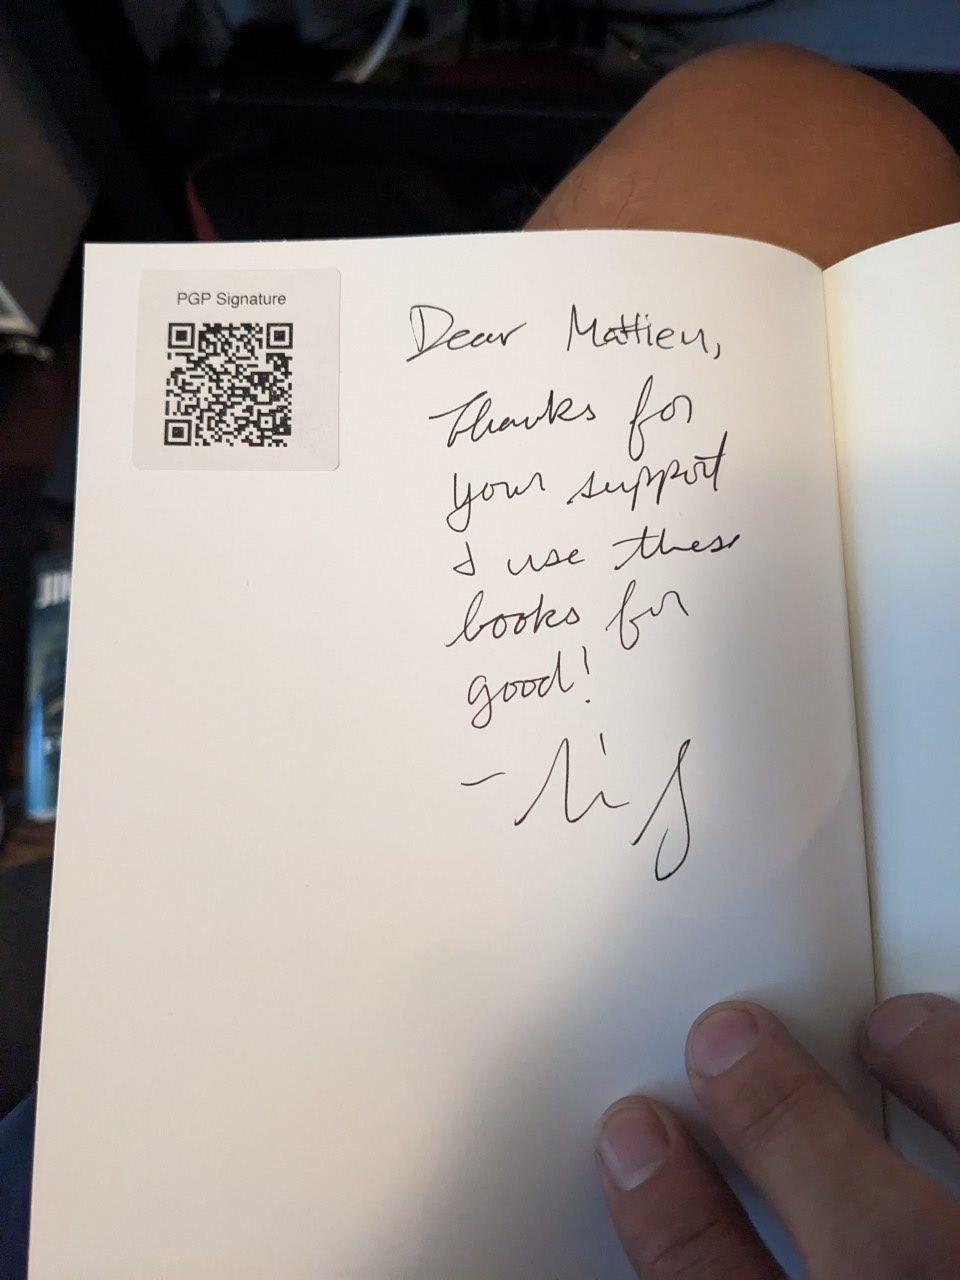 PGP Signature
Dear Mattieu,
Thanks for
your support
& use these
books for
good!